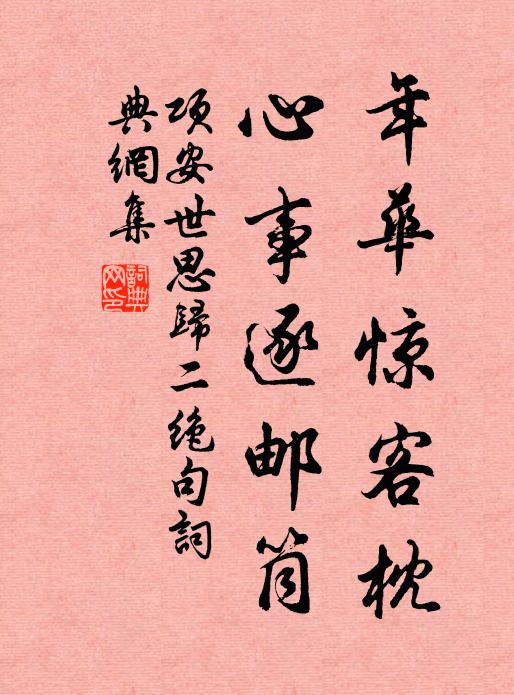 年華惊客枕
心事逐邮筒
项安世思歸二绝句詞
典網集
詞典網印